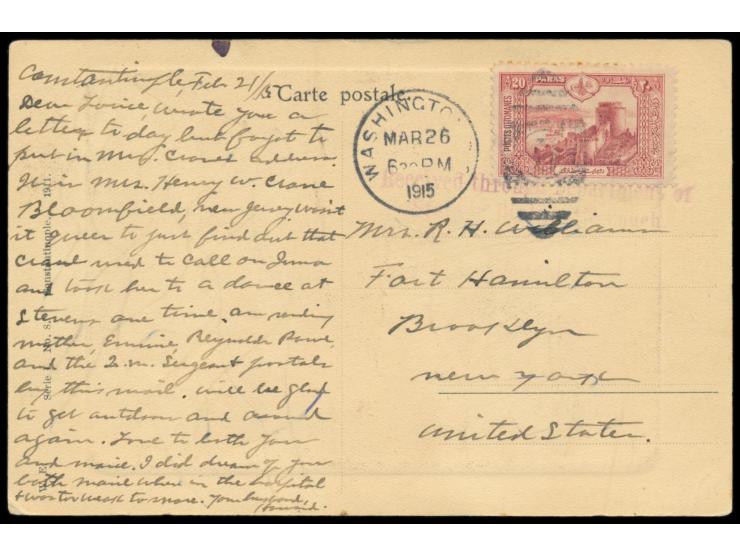 Constantinople, Feb 21/15
Carte postale.
Dear Louise, wrote you a
letter to day but forgot to
put in Mrs. Cranes address
It is Mrs. Henry W. Crane
Bloomfield, new Jersey. Isn't
it queer to just find out that
Crane used to call on
and took her to a dance at
Stevens one time. am sending
mother, Reynolds,
and the Q.M. Sergeant postals
by this mail. will be glad
to get outdoor and around
again. Love to both you
and marie. I did dream of you
both while when in the hospital
& was too weak to move. Your husband,
Howard.
Série No. 8. Constantinople, 1911.
WASHINGTO
MAR 26
6 30 PM
1915
20 PARAS
POSTES OTTOMANES
Received through
of
Mrs. R. H. Williams
Fort Hamilton
Brooklyn
new york
United States.